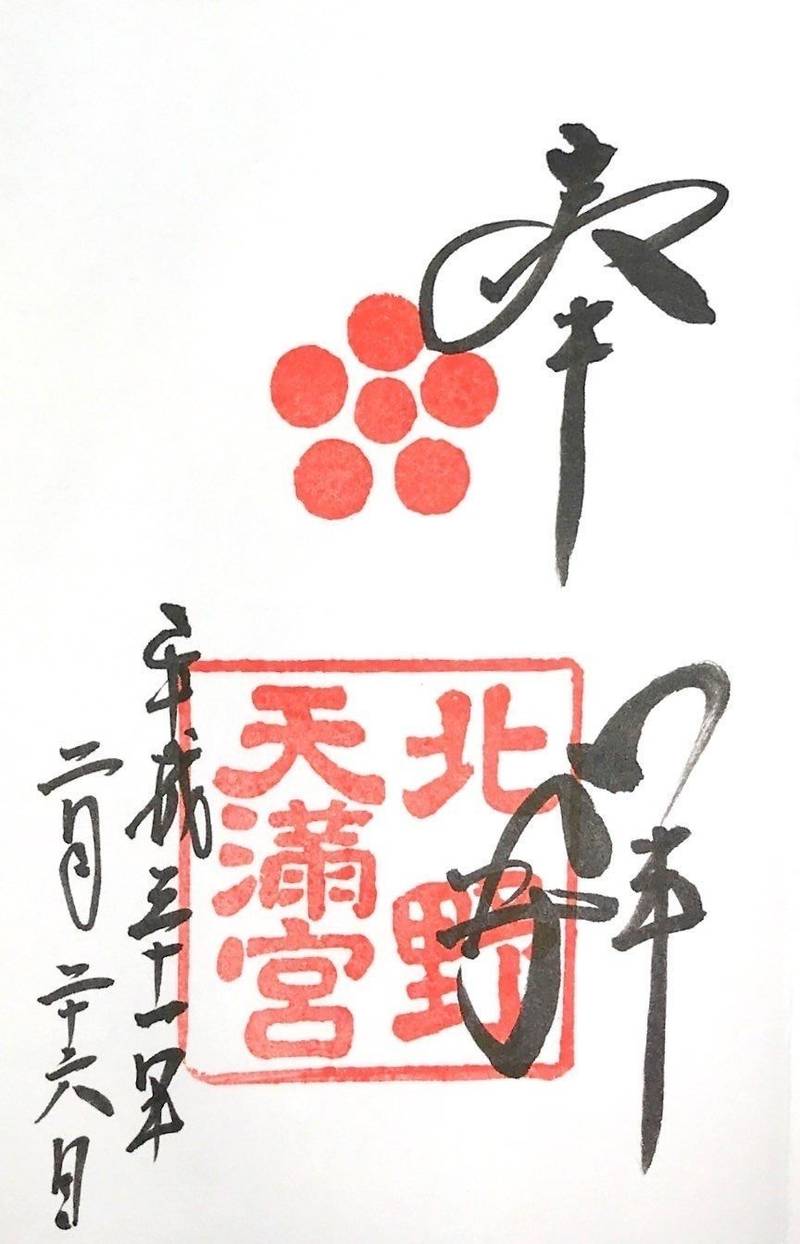 奉拝
北野
天満宮
平成三十一年
二月二十六日